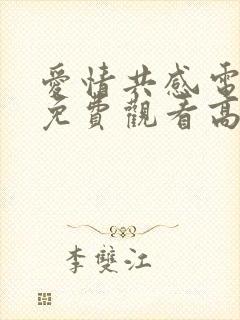 愛情共感電
免費觀看高
李雙江